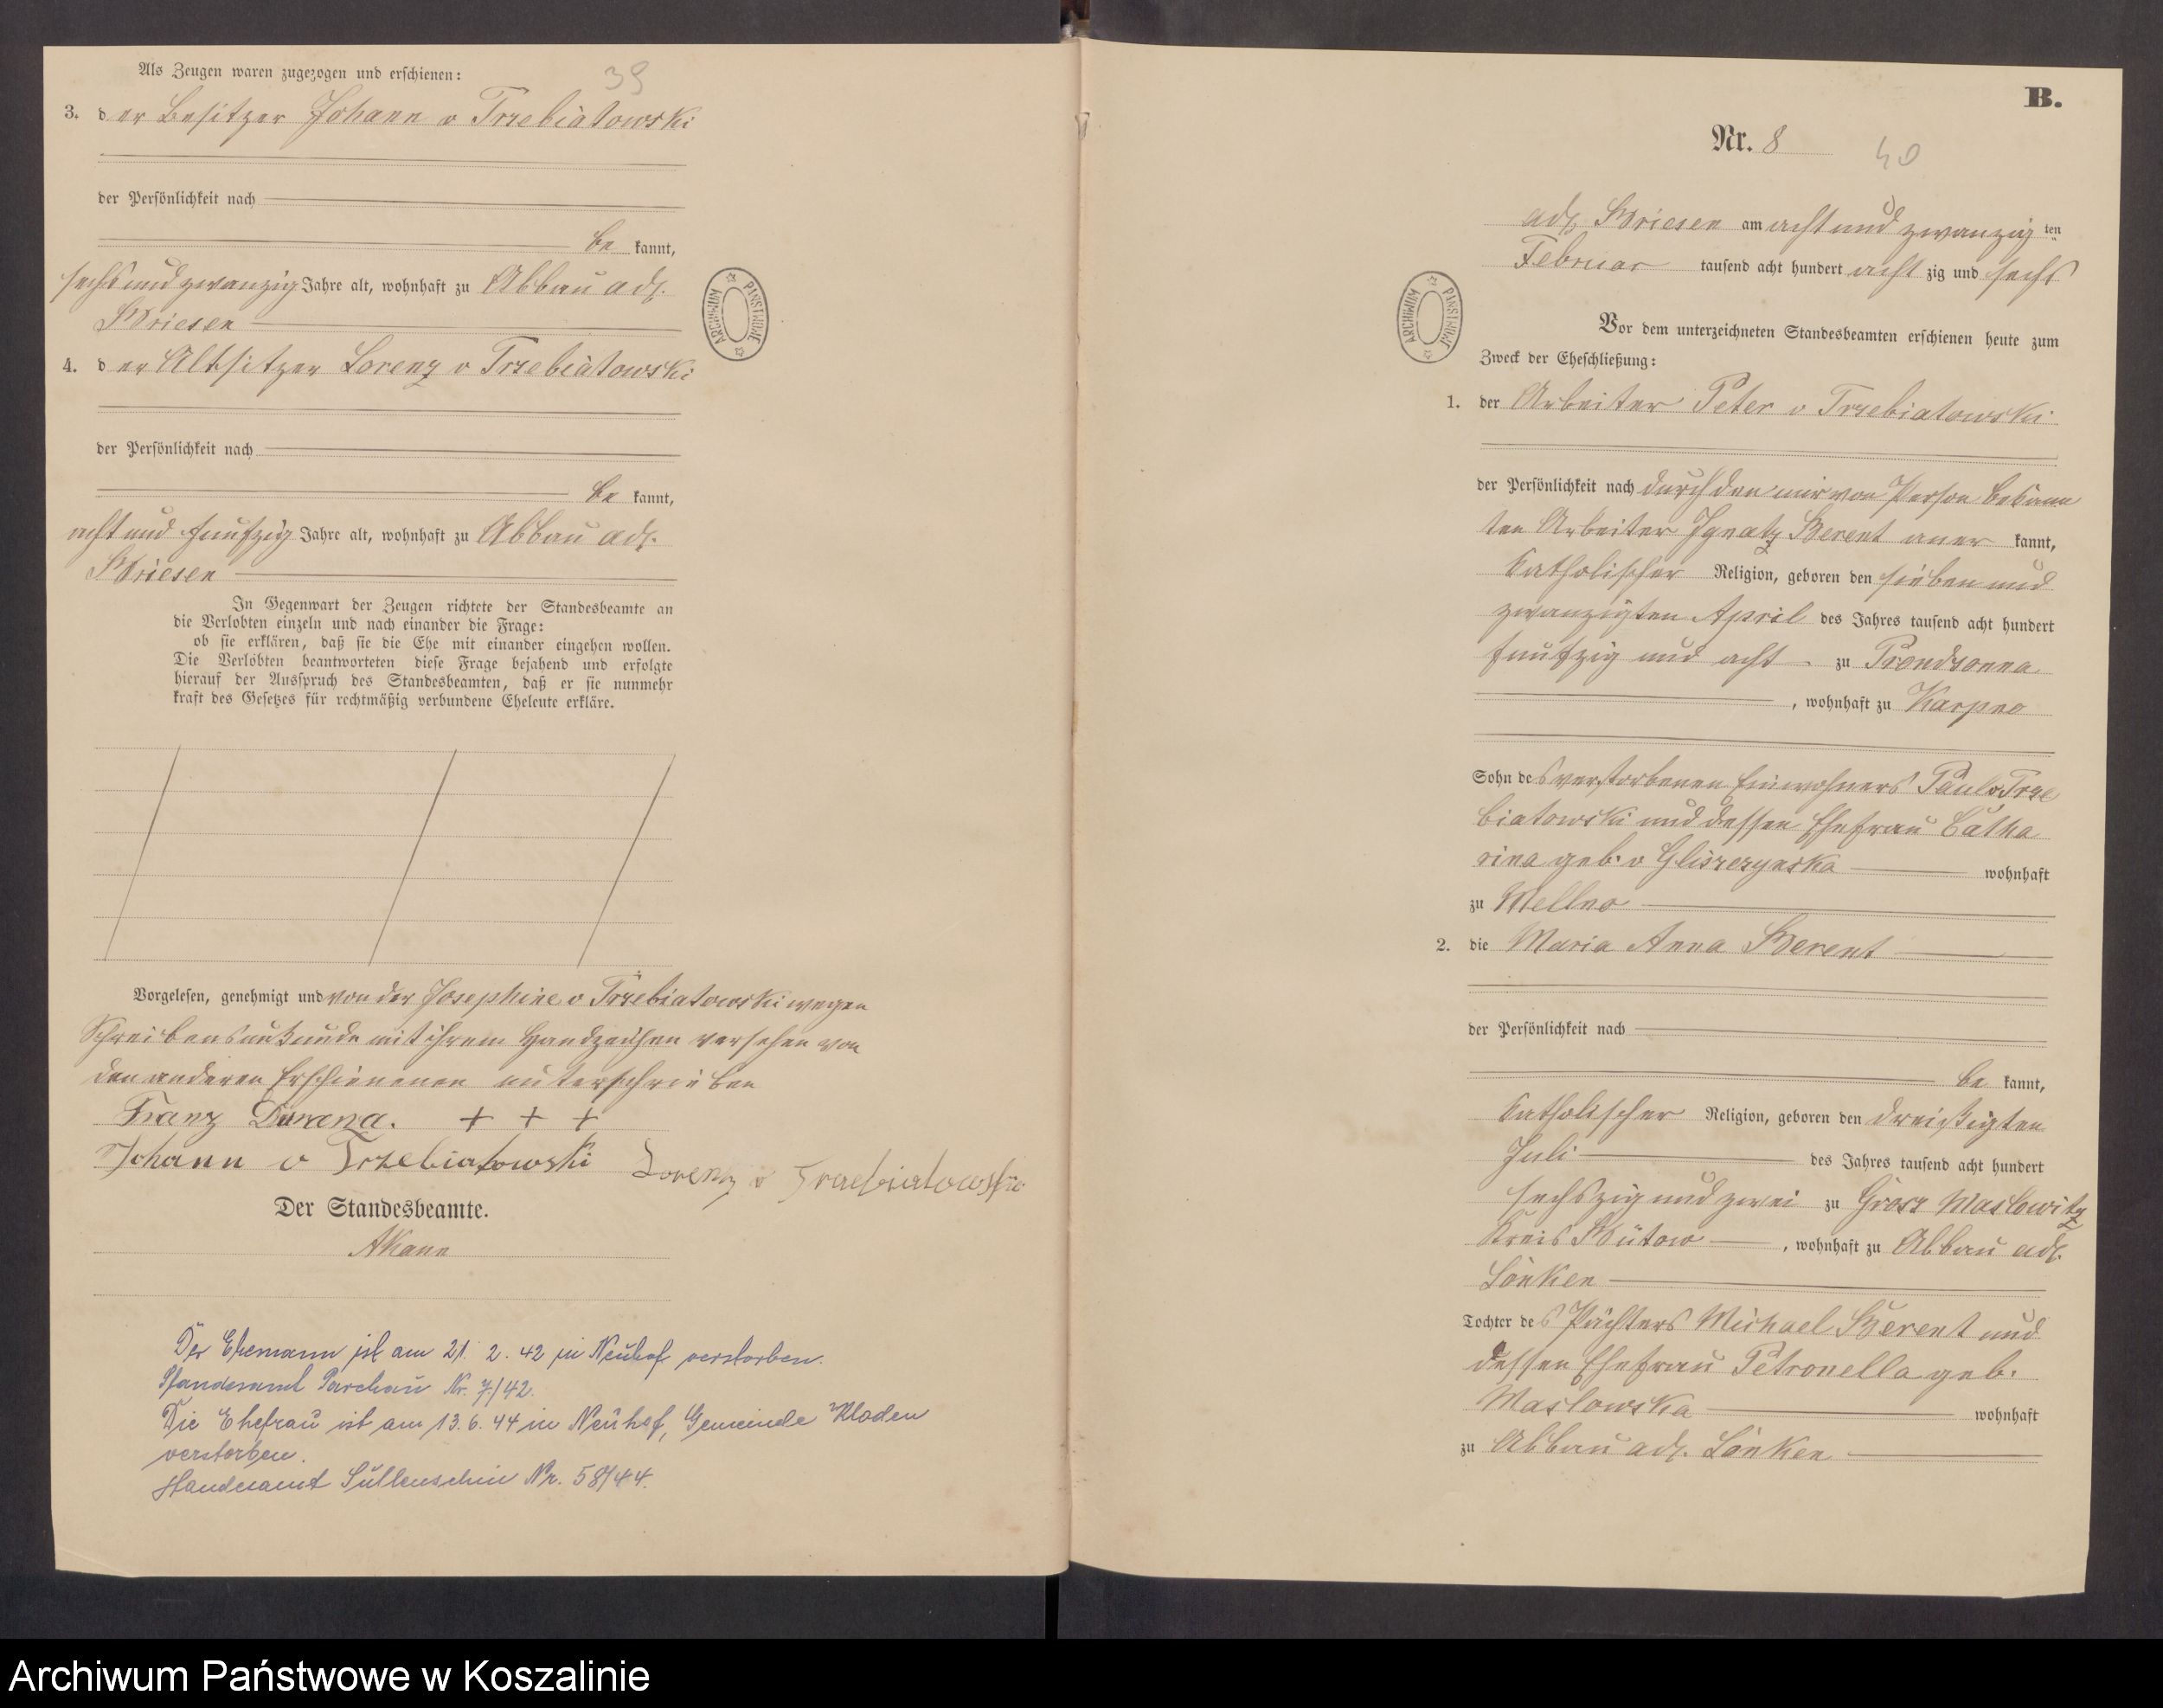 Als Zeugen waren zugezogen und erschienen:
39
3. der Besitzer Johann v Trzebiatowski
der Persönlichkeit nach
be kannt,
sechs und zwanzig Jahre alt, wohnhaft zu Abbau adl.
Briesen
4. der Altsitzer Lorenz v Trzebiatowski
der Persönlichkeit nach
be kannt,
acht und funfzig Jahre alt, wohnhaft zu Abbau adl.
Briesen
In Gegenwart der Zeugen richtete der Standesbeamte an
die Verlobten einzeln und nach einander die Frage:
ob sie erklären, daß sie die Ehe mit einander eingehen wollen.
Die Verlobten beantworteten diese Frage bejahend und erfolgte
hierauf der Ausspruch des Standesbeamten, daß er sie nunmehr
kraft des Gesetzes für rechtmäßig verbundene Eheleute erkläre.
Vorgelesen, genehmigt und von der Josephine v Trzebiatowski wegen
Schreibensunkunde mit ihrem Handzeichen versehen von
den anderen Erschienenen unterschrieben
Franz + + +
Johann v Trzebiatowski Lorenz v Trzebiatowski
Der Standesbeamte.
Der Ehemann ist am 21. 2. 42 in Neuhof verstorben.
Standesamt Parchau Nr. 7/42.
Die Ehefrau ist am 13. 6. 44 in Neuhof, Gemeinde Kloden
verstorben.
Standesamt Sullenschin Nr. 58/44.
ARCHIWUM PAŃSTWOWE
B.
Nr. 8
40
adl. Briesen am acht und zwanzig ten
Februar tausend acht hundert acht zig und sechs
ARCHIWUM PAŃSTWOWE
Vor dem unterzeichneten Standesbeamten erschienen heute zum
Zweck der Eheschließung:
1. der Arbeiter Peter v Trzebiatowski
der Persönlichkeit nach durch den mir von Person bekann
ten Arbeiter Ignatz Berent aner kannt,
katholischer Religion, geboren den sieben und
zwanzigten April des Jahres tausend acht hundert
funfzig und acht zu Prondzonna
, wohnhaft zu Karpno
Sohn des verstorbenen Einwohners Paul v Trze
biatowski und dessen Ehefrau Catha
rina geb. v Gliszczynska wohnhaft
zu Mellno
2. die Maria Anna Berent
der Persönlichkeit nach
be kannt,
katholischer Religion, geboren den dreißigten
Juli des Jahres tausend acht hundert
sechszig und zwei zu Gross Maslowitz
Kreis Bütow , wohnhaft zu Abbau adl.
Lonken
Tochter des Pächters Michael Berent und
dessen Ehefrau Petronella geb.
Maslowska wohnhaft
zu Abbau adl. Lonken
Archiwum Państwowe w Koszalinie